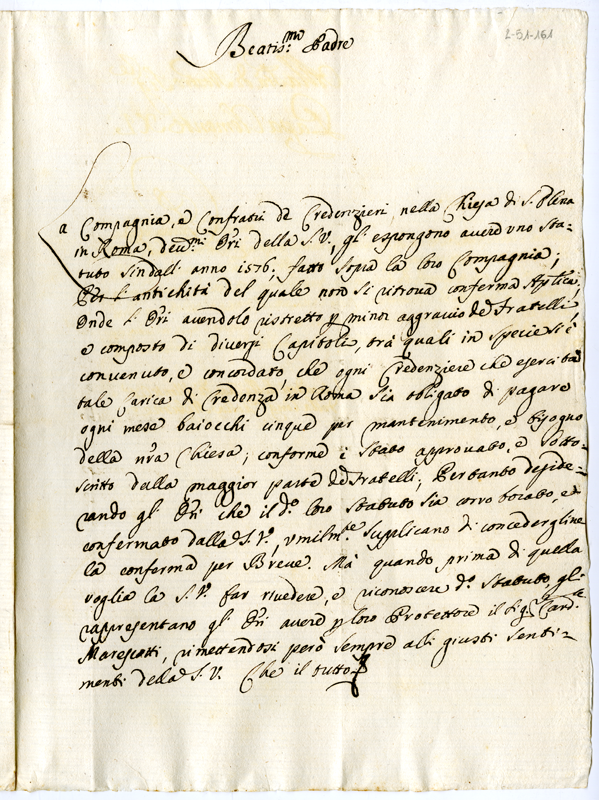 2-31-161
Beatis.mo Padre
La Compagnia, e Confratij de Credenzieri nella Chiesa di S. Elena
in Roma, deuot.mi Ori della S.V., gl' espongono auere uno Sta-
tuto sin dall' anno 1576, fatto sopra la loro Compagnia,
Per l' antichità del quale non si ritroua conferma Aplica,
Onde l' Ori auendolo ristretto p minor aggrauio de Fratelli,
e composto di diuersi Capitoli, trà quali in specie si è
conuenuto, e concordato, che ogni Credenziere che esercita
tale Carica di Credenza in Roma sia obligato di pagare
ogni mese baiocchi cinque per mantenimento, e bisogno
della nra Chiesa; conforme è stato approuato, e sotto-
scritto dalla maggior parte de Fratelli, Pertanto deside-
rando gl' Ori che il d.o loro Statuto sia corroborato, e
confermato dalla S.V., umilm.te supplicano di concedergline
la conferma per Breue. Mà quando prima di quella
voglia la S.V. far riuedere, e riconoscere d.o Statuto, gl'
rappresentano gl' Ori auere p loro Protettore il Sig.r Card.le
Marescotti, rimettendosi però sempre alli giusti senti-
menti della S.V. Che il tutto